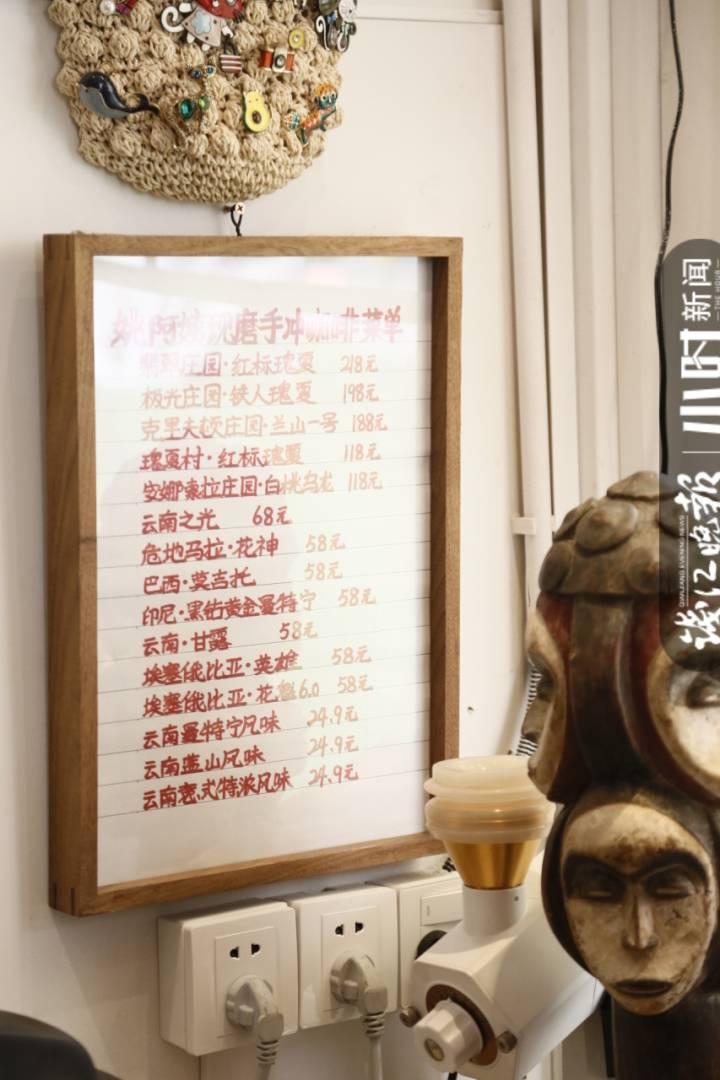 姚阿姨现磨手冲咖啡菜单
翡翠庄园·红标瑰夏 218元
极光庄园·铁人瑰夏 198元
克里夫顿庄园·兰山一号 188元
瑰夏村·红标瑰夏 118元
安娜索拉庄园·白桃乌龙 118元
云南之光 68元
危地马拉·花神 58元
巴西·莫吉托 58元
印尼·黑钻黄金曼特宁 58元
云南·甘露 58元
埃塞俄比亚·英雄 58元
埃塞俄比亚·花魁6.0 58元
云南曼特宁风味 24.9元
云南蓝山风味 24.9元
云南意式特浓风味 24.9元
钱江晚报
QIANJIANG EVENING NEWS
小时新闻